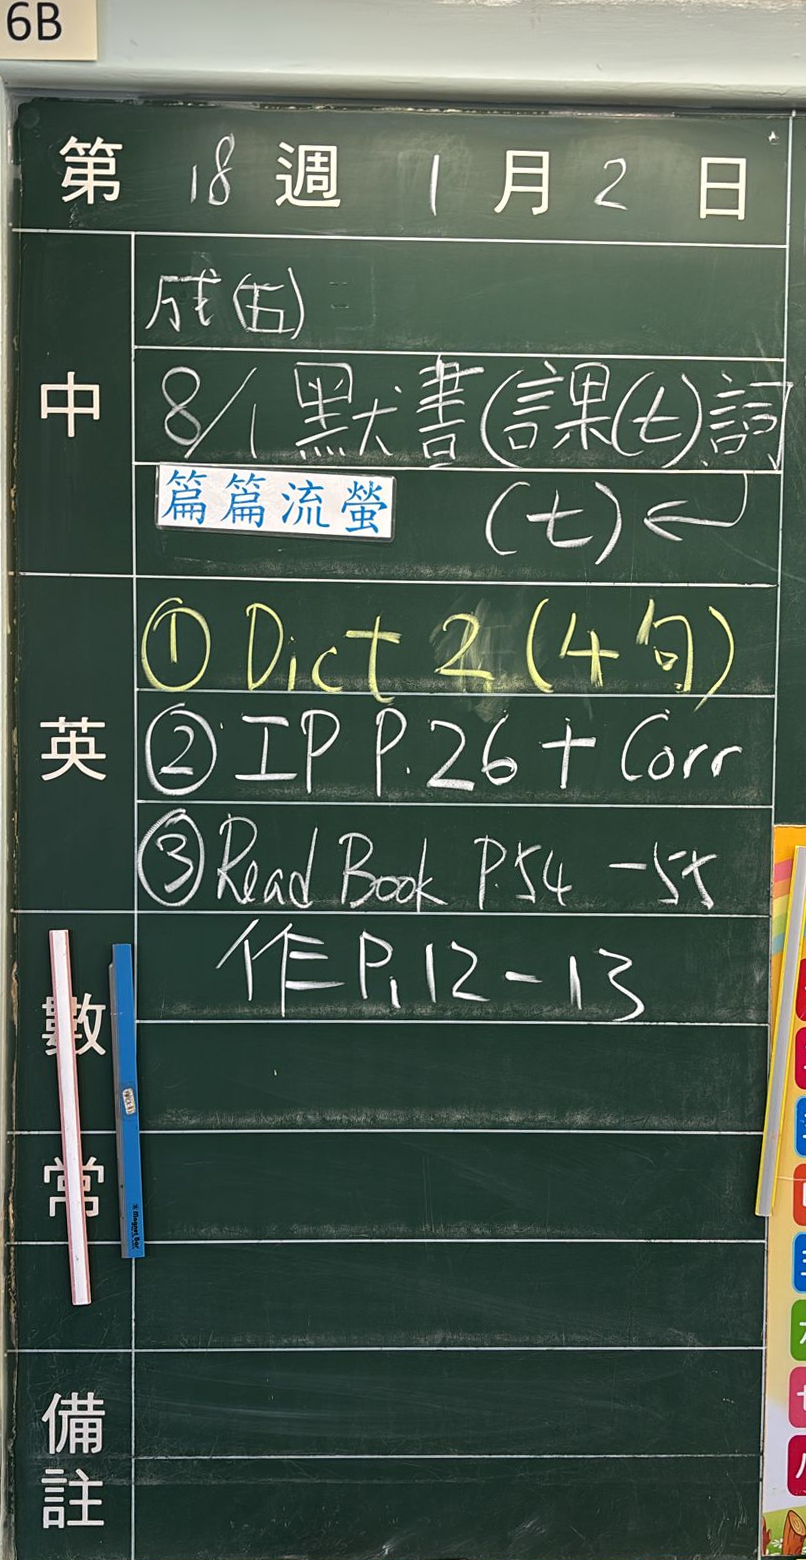 6B
第 18 週 1 月 2 日
中
成(五)
8/1 默書(課(七)詞
(七)
篇篇流螢
英
① Dict 2 (4句)
② IP P.26 + Corr
③ Read Book P.54 - 55
數
作 P.12 - 13
常
備註